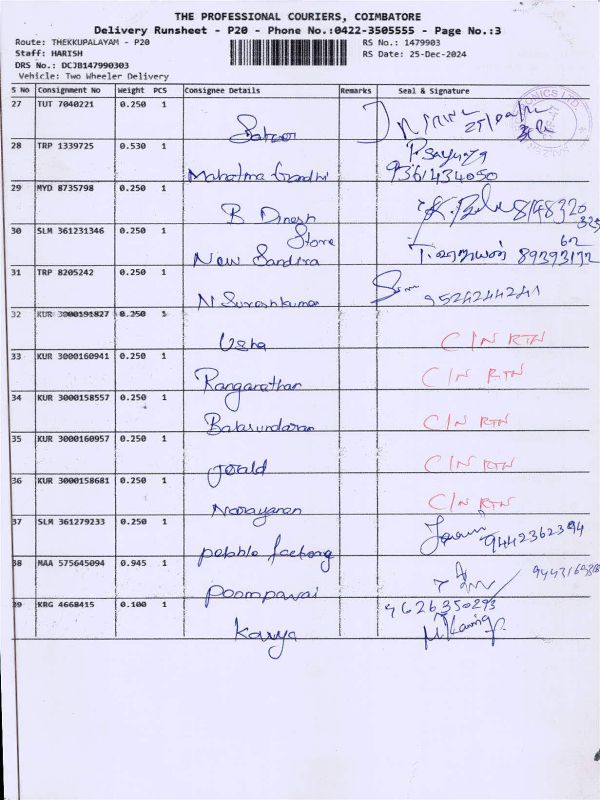 THE PROFESSIONAL COURIERS, COIMBATORE
Delivery Runsheet - P20 - Phone No.:0422-3505555 - Page No.:3
Route: THEKKUPALAYAM - P20 RS No.: 1479903
Staff: HARISH RS Date: 25-Dec-2024
DRS No.: DCJB147990303
Vehicle: Two Wheeler Delivery
S No Consignment No Weight PCS Consignee Details Remarks Seal & Signature
27 TUT 7040221 0.250 1
28 TRP 1339725 0.530 1
Mahatma Gandhi 9361434050
29 MYD 8735798 0.250 1
B Dinesh
30 SLM 361231346 0.250 1 Store
New Sandira
31 TRP 8205242 0.250 1
N Sureshkumar 9524244241
32 KUR 3000191827 0.250 1
Usha C/N RTN
33 KUR 3000160941 0.250 1
Ranganathan C/N RTN
34 KUR 3000158557 0.250 1
Balasundaram C/N RTN
35 KUR 3000160957 0.250 1
Jerald C/N RTN
36 KUR 3000158681 0.250 1
Narayanan C/N RTN
37 SLM 361279233 0.250 1
pebble 9442362394
38 MAA 575645094 0.945 1
Poompavai
39 KRG 4668415 0.100 1 9626350293
Kavya